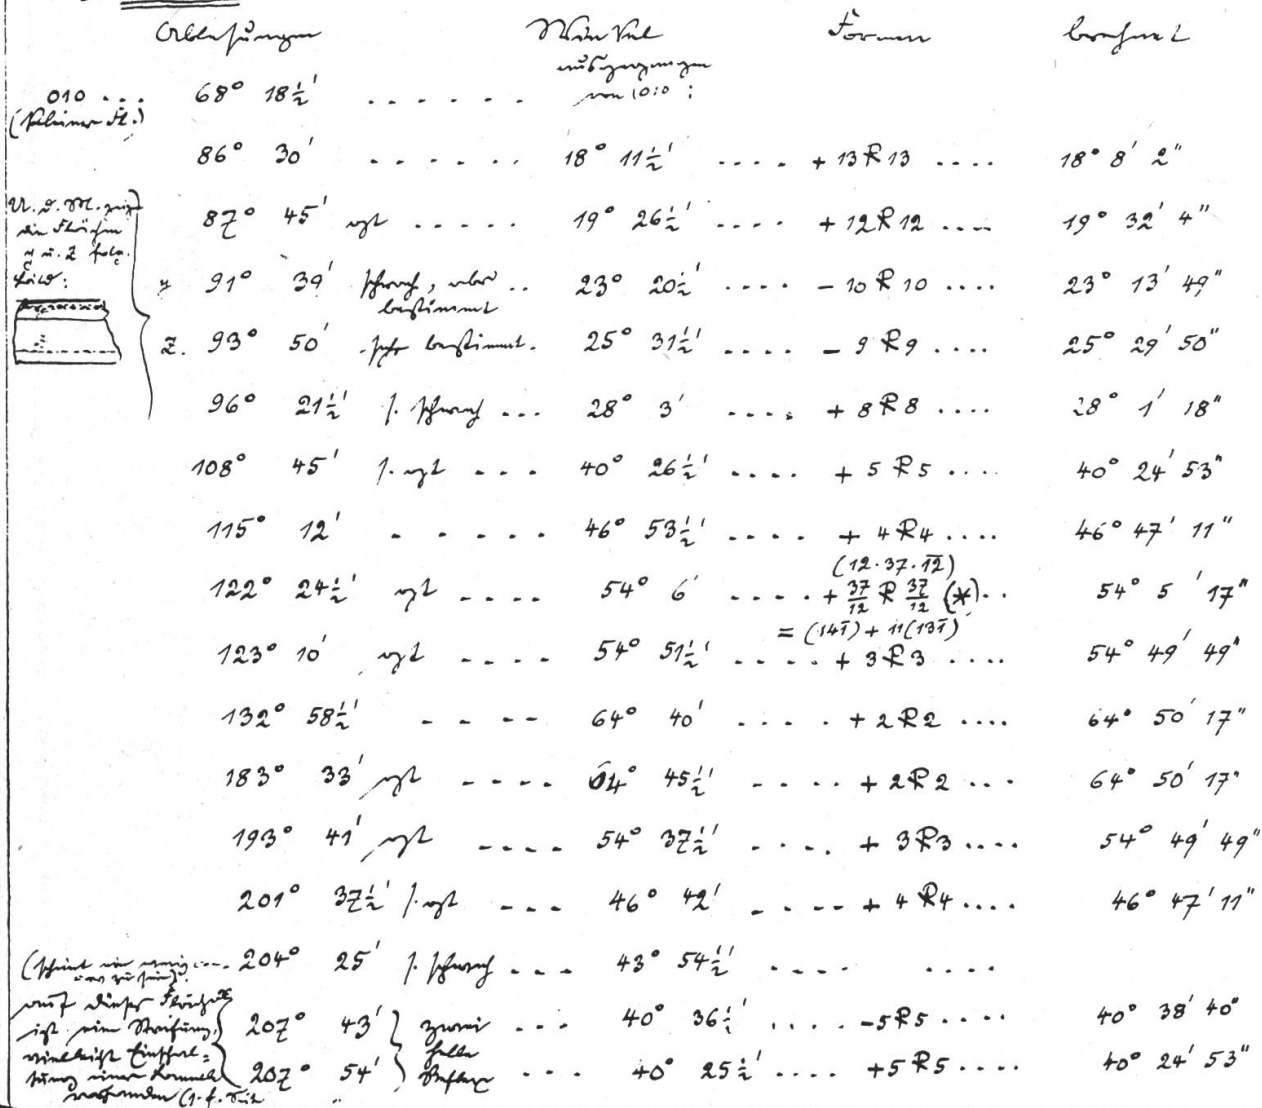 Ablesungen Winkel Formen berechnet
ausgegangen
010 . . . 68° 18½' . . . . . . von 10:0 :
(kleinere Fl.)
86° 30' . . . . . . 18° 11½' . . . . + 13 R 13 . . . . 18° 8' 2"
U. d. M. zeigen
die Flächen
y u. z folg.
Bild:
87° 45' gt . . . . . 19° 26½' . . . . + 12 R 12 . . . . 19° 32' 4"
y 91° 39' schwach, aber . . 23° 20½' . . . . - 10 R 10 . . . . 23° 13' 49"
bestimmt
z. 93° 50' sehr bestimmt. 25° 31½' . . . . - 9 R 9 . . . . 25° 29' 50"
96° 21½' s. schwach . . . 28° 3' . . . . + 8 R 8 . . . . 28° 1' 18"
108° 45' s. gt . . . 40° 26½' . . . . + 5 R 5 . . . . 40° 24' 53"
115° 12' . . . . . 46° 53½' . . . . + 4 R 4 . . . . 46° 47' 11"
(12·37·1̄2̄)
122° 24½' gt . . . . 54° 6' . . . . + 37/12 R 37/12 (*) . . 54° 5' 17"
= (141̄) + 11(131̄)
123° 10' gt . . . . 54° 51½' . . . . + 3 R 3 . . . . 54° 49' 49"
132° 58½' . . . . 64° 40' . . . . + 2 R 2 . . . . 64° 50' 17"
183° 33' gt . . . . 64° 45½' . . . . + 2 R 2 . . . 64° 50' 17"
193° 41' gt . . . . 54° 37½' . . . . + 3 R 3 . . . . 54° 49' 49"
201° 37½' s. gt . . . 46° 42' . . . . + 4 R 4 . . . . 46° 47' 11"
(scheint ein wenig
204° 25' s. schwach . . . 43° 54½' . . . . . . . .
zu sein).
auf dieser Fläche
ist eine Streifung,
vielleicht Einschal=
tung einer Lamelle
vorhanden (s. f. Seite
207° 43' zwei . . . 40° 36½' . . . . -5 R 5 . . . . 40° 38' 40"
helle
207° 54' Reflexe . . . 40° 25½' . . . . +5 R 5 . . . . 40° 24' 53"